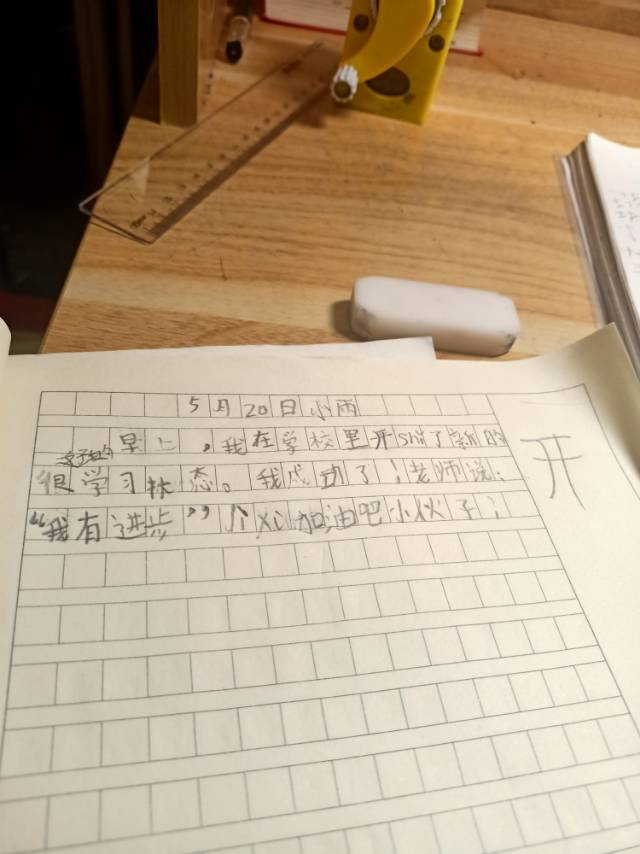 5月20日小雨
早上,我在学校里开shi了新的
很学习状态。我成功了!老师说:
“我有进步”个xi加油吧小伙子!
开